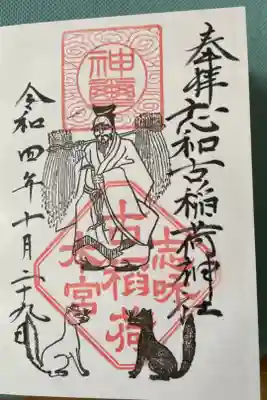 奉拝
志和古稲荷神社
神璽
志咊
古稲荷
大宮
令和四年十月二十九日